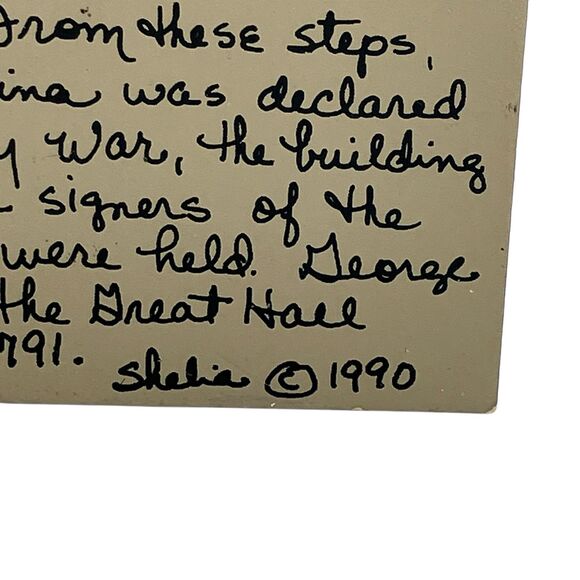 From these steps,
ina was declared
y War, the building
signers of the
were held. George
the Great Hall
791.
Shelia © 1990